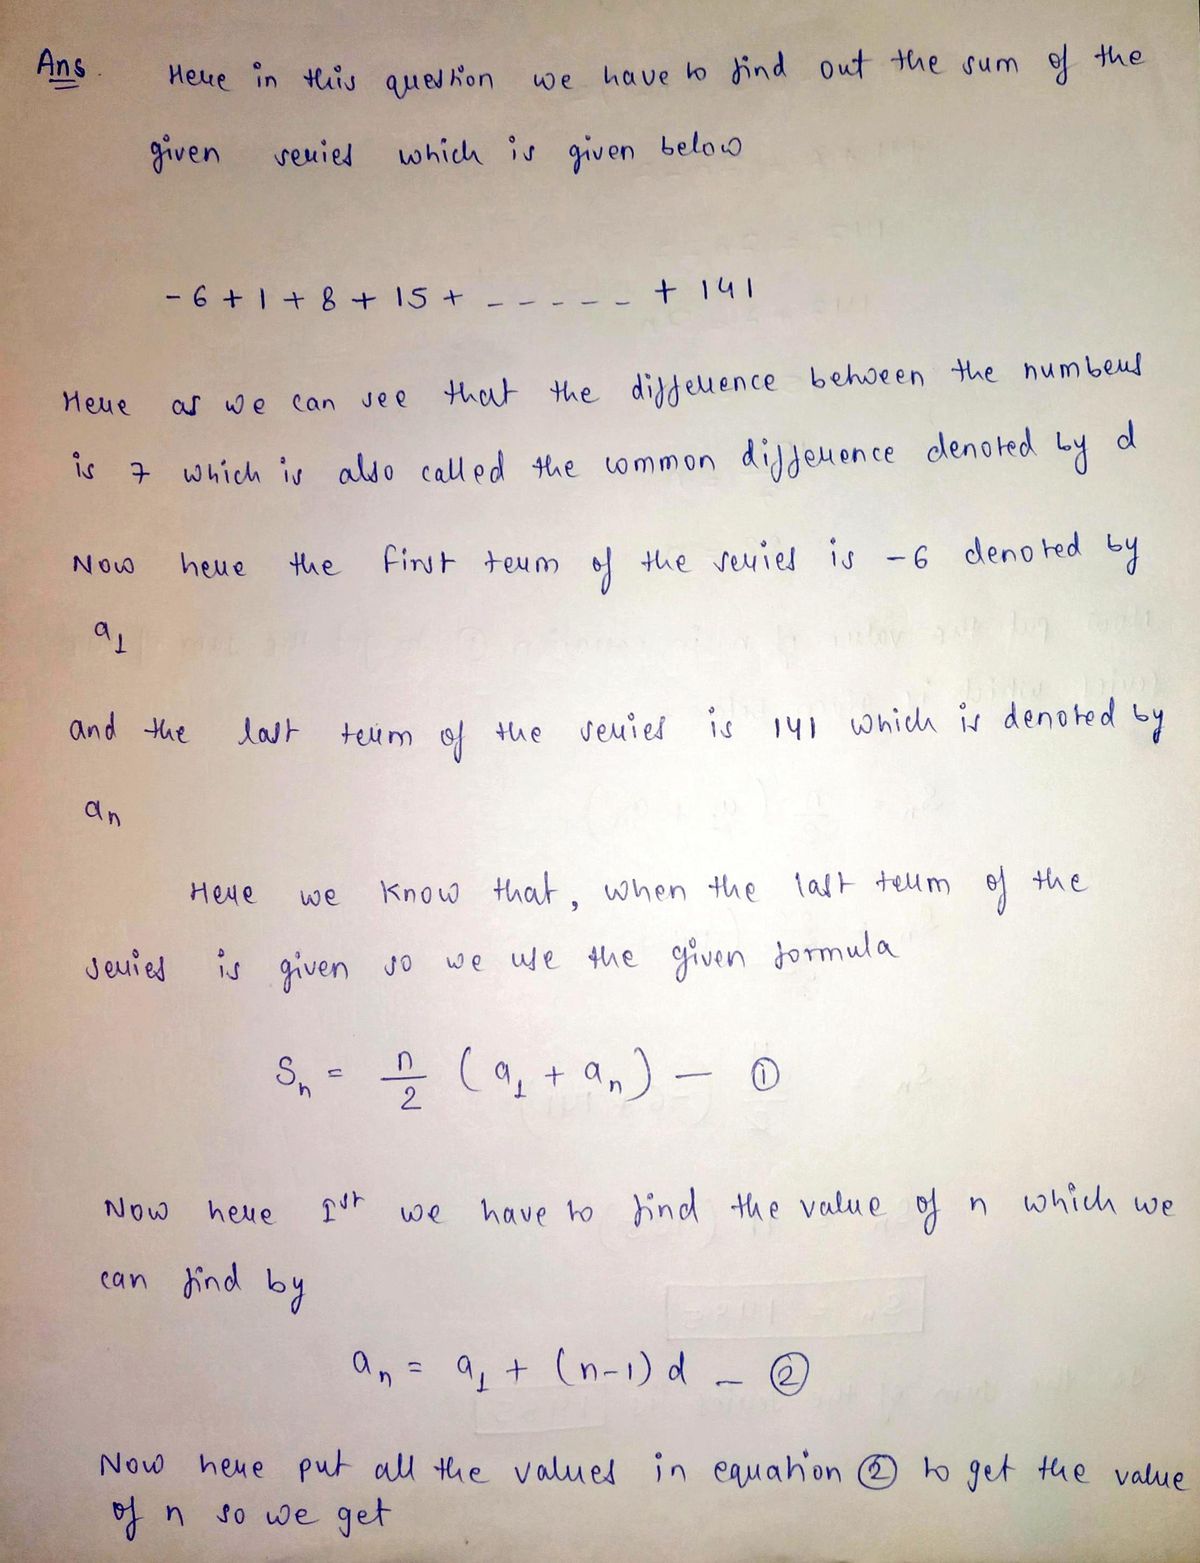 Ans.
Here in this question we have to find out the sum of the
given series which is given below
- 6 + 1 + 8 + 15 + - - - - - + 141
Here as we can see that the difference between the numbers
is 7 which is also called the common difference denoted by d
Now here the first term of the series is -6 denoted by
a₁
and the last term of the series is 141 which is denoted by
aₙ
Here we know that, when the last term of the
series is given so we use the given formula
Sₙ = n/2 (a₁ + aₙ) — ①
Now here Ist we have to find the value of n which we
can find by
aₙ = a₁ + (n-1) d — ②
Now here put all the values in equation ② to get the value
of n so we get